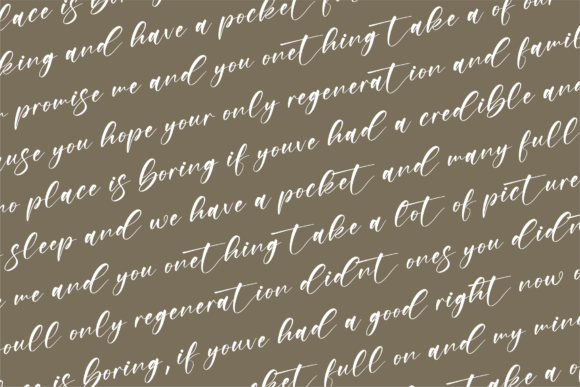 place is boring
king and have a pocket fu
promise me and you onething take a of our
use you hope your only regeneration and famil
no place is boring if youve had a credible and
sleep and we have a pocket and many full
me and you onething take a lot of picture
oull only regeneration didnt ones you didn
is boring, if youve had a good right now o
pocket full on and my min
take a o